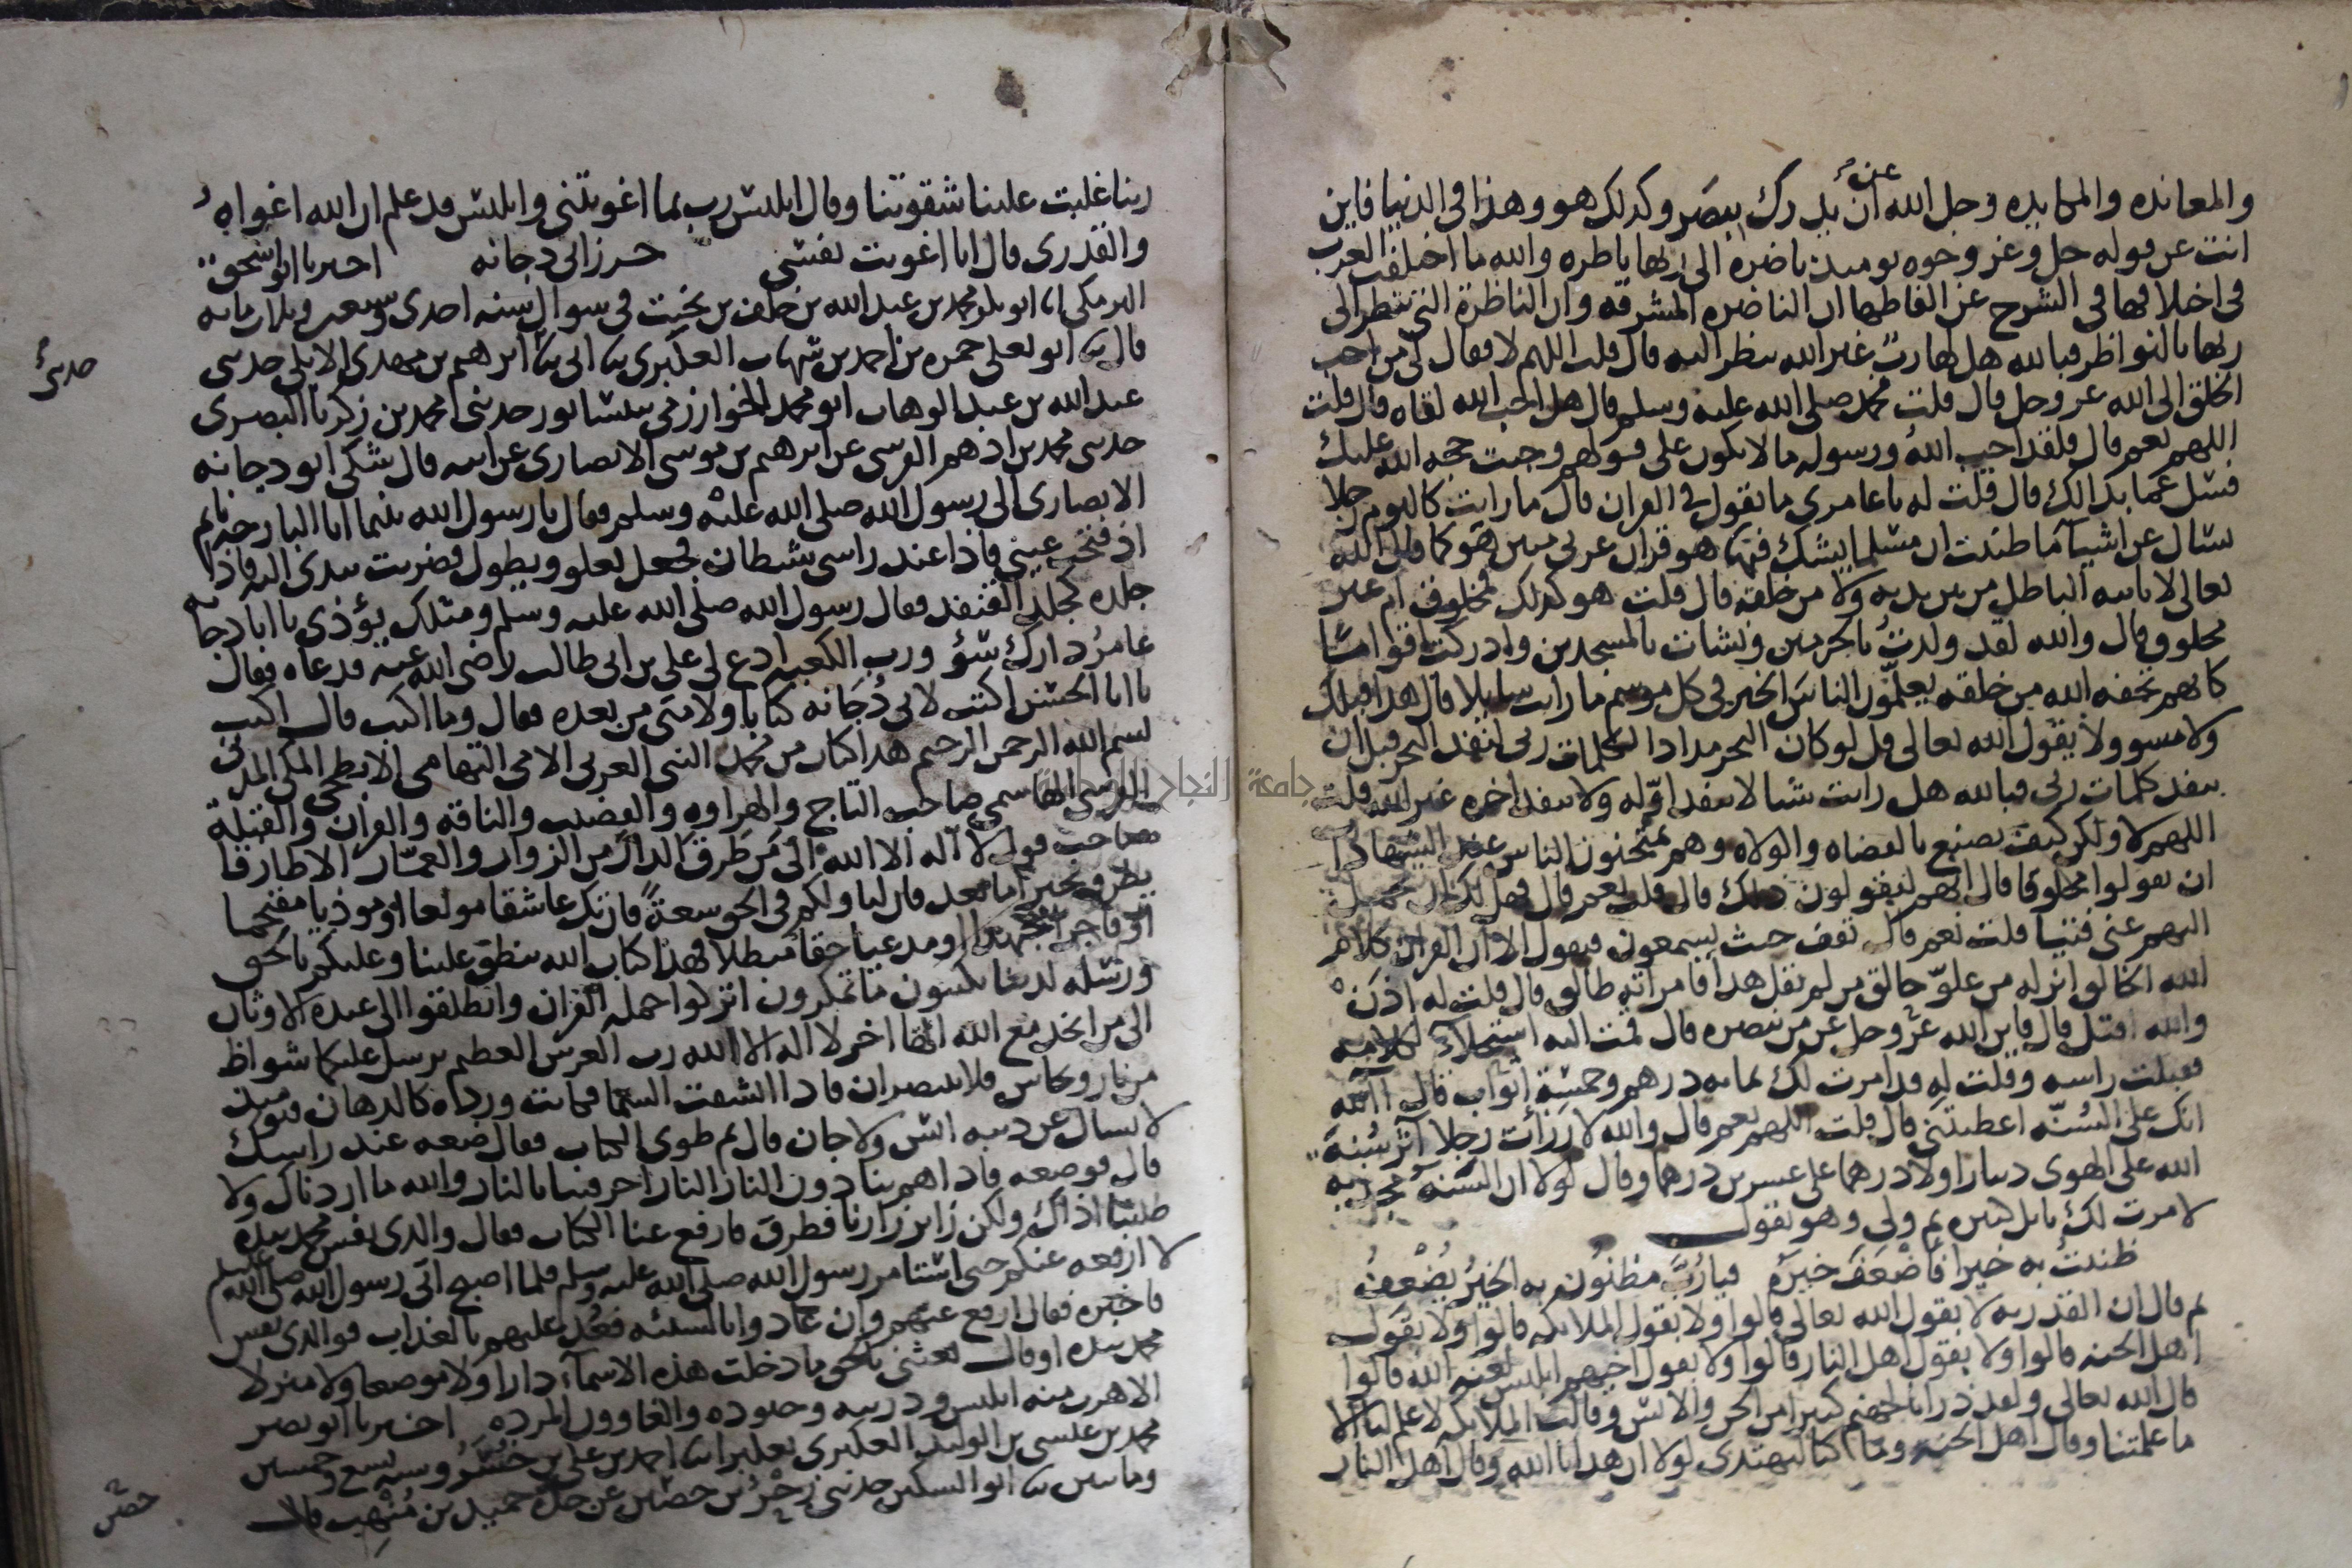 والمعانده والمكايده وجل الله عن ان يدرك ببصر وكذلك هو وهذا في الدنيا فاين
انت عن قوله جل وعز وجوه يوميذ ناضره الى ربها ناظره والله ما اختلفت العرب
في اخلافها في الشرح عن الفاظها ان الناضره المشرقه وان الناظرة التي تنظر الى
ربها بالنواظر فبالله هل لها رب غير الله ينظر اليه قال قلت اللهم لا فقال لي من احب
الخلق الى الله عز وجل قال قلت محمد صلى الله عليه وسلم قال هل احب الله لقاه قال قلت
اللهم نعم قال فلقد احب الله ورسوله ما لا يكون على قولهم وجبت حجه الله عليك
فسل عما بدا لك قال قلت له يا عامري ما تقول في القران قال ما رايت كاليوم رجلا
سال عن اشيا ما ظننت ان مسلما يشك فيها هو قران عربي مبين هو كما قال الله
تعالى لا ياتيه الباطل من بين يديه ولا من خلفه قال قلت هو كذلك مخلوق ام غير
مخلوق قال والله لقد ولدت بالحرمين ونشات بالمسجدين وادركت اقواما
كانهم تحفه الله من خلقه يعلمون الناس الخير في كل موسم ما رايت سايلا قال هذا قبلك
ولا مسوولا يقول الله تعالى قل لو كان البحر مدادا لكلمات ربي لنفد البحر قبل ان
ينفد كلمات ربي فبالله هل رايت شيا لا ينفد اوله ولا ينفد اخره غير الله قلت
اللهم لا ولكن كيف نصنع بالقضاه والولاه وهم يمتحنون الناس عند الشهادات
ان يقولوا مخلوقا قال انهم ليقولون ذلك قال قلت نعم قال فهل لك ان تحمل
اليهم عني فتيا قلت نعم قال تقف حيث يسمعون فيقول الا ان القران كلام
الله الخالق انزله من علو خالق من لم يقل هذا فامراته طالق قال قلت له اذن
والله اقتل قال فاين الله عز وجل عن من نصره قال قمت اليه استحلا لكلامه
فقبلت راسه وقلت له قد امرت لك بمايه درهم وخمسة اثواب قال آلله
انك على السنه اعطيتني قال قلت اللهم نعم قال والله لا رزات رجلا اثر سنة
الله على الهوى دينارا ولا درهما على عسرين درهما وقال لولا ان السنه
لامرت لك بابل كثيره ثم ولى وهو يقول
ظننت به خيرا فاضعف خيره فيا رب مظنون به الخير يضعف
ثم قال ان القدريه لا يقول الله تعالى قالوا ولا بقول الملايكه قالوا ولا بقول
اهل الجنه قالوا ولا بقول اهل النار قالوا ولا بقول اخيهم ابليس لعنه الله قالوا
قال الله تعالى ولقد ذرانا لجهنم كثيرا من الجن والانس وقالت الملايكه لا علم لنا الا
ما علمتنا وقال اهل الجنه وما كنا لنهتدى لولا ان هدانا الله وقال اهل النار
ربنا غلبت علينا شقوتنا وقال ابليس رب بما اغويتني وابليس قد علم ان الله اغواه
والقدرى قال انا اغويت نفسي حرز ابي دجانه اخبرنا ابو اسحق
البرمكي انا ابو بكر محمد بن عبد الله بن خلف بن بخيت في سوال سنه احدى وسبعين وثلاث مايه
قال ثنا ابو يعلى حمزه بن احمد بن شهاب العكبرى ثنا ابي ثنا ابرهيم بن مهدى الابلي حدثني
حدثني
عبد الله بن عبد الوهاب ابو محمد الخوارزمي بنيسابور حدثني محمد بن زكريا البصرى
حدثني محمد بن ادهم القرسي عن ابرهيم بن موسى الانصارى عن ابيه قال شكى ابو دجانه
الانصارى الى رسول الله صلى الله عليه وسلم فقال يا رسول الله بينما انا البارحه نايم
اذ فتحت عيني فاذا عند راسي شيطان فجعل يعلو ويطول فضربت بيدى اليه فاذا
جلده كجلد القنفذ فقال رسول الله صلى الله عليه وسلم ومثلك يؤذى يا ابا دجانه
عامر دارك سوء ورب الكعبه ادع لي علي بن ابي طالب رضي الله عنه فدعاه فقال
يا ابا الحسن اكتب لابي دجانه كتابا ولامتي من بعده فقال وما اكتب قال اكتب
بسم الله الرحمن الرحيم هذا كتاب من محمد النبي العربي الامي التهامي الابطحي المكي المدني
القرسي الهاسمي صاحب التاج والهراوه والقضيب والناقه والقران والقبلة
صاحب قول لا اله الا الله الى من طرق الدار من الزوار والعمار الا طارقا
يطرق بخير اما بعد فان لنا ولكم في الحق سعة فان تك عاشقا مولعا او موذيا مقتحما
او فاجرا مجتهدا او مدعيا حقا مبطلا فهذا كتاب الله ينطق علينا وعليكم بالحق
ورسله لدينا يكتبون ما تمكرون اتركوا حمله القران وانطلقوا الى عبده الاوثان
الى من اتخذ مع الله الها اخر لا اله الا الله رب العرش العظيم يرسل عليكما شواظ
من نار ونحاس فلا تنتصران فاذا انشقت السما فكانت ورداه كالدهان فيوميذ
لا يسال عن ذنبه انس ولا جان قال ثم طوى الكتاب فقال ضعه عند راسك
قال فوضعه فاذا هم ينادون النار النار احرقتنا بالنار والله ما اردناك ولا
طلبنا اذاك ولكن زاير زارنا فطرق فارفع عنا الكتاب فقال والذى نفس محمد بيده
لا ارفعه عنكم حتى استامر رسول الله صلى الله عليه وسلم فلما اصبح اتى رسول الله صلى الله عليه وسلم
فاخبره فقال ارفع عنهم وان عادوا بالسيئه فعد عليهم بالعذاب فوالذى نفس
محمد بيده او قال بعثني بالحق ما دخلت هذه الاسماء دارا ولا موضعا ولا منزلا
الا هرب منه ابليس وذريته وجنوده والغاوون المرده اخبرنا ابو نصر
محمد بن علي بن الوليد العكبرى بعكبرا ثنا احمد بن علي بن وسنه تسع وخمسين
ومايتين ثنا ابو السكين حدثني زحر بن حصن عن جده حميد بن منهب قال
حصن
جامعة النجاح الوطنية